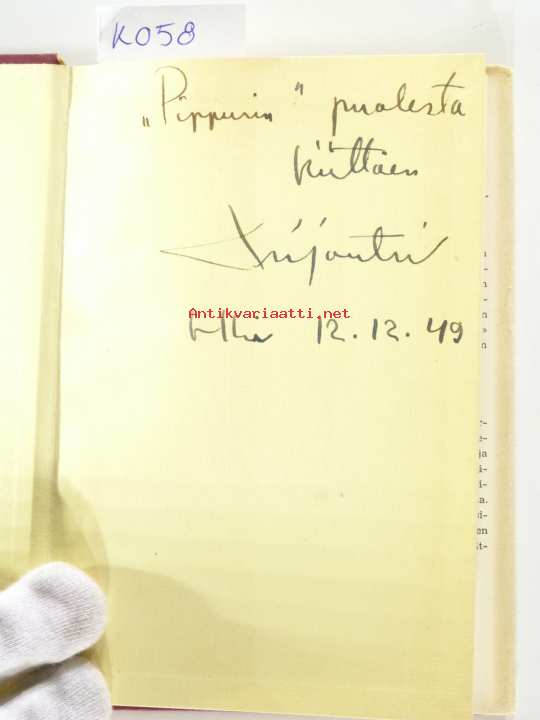 K058
„Pippurin" puolesta
kiittäen
Antikvariaatti.net
12.12.49
ja
a.
en